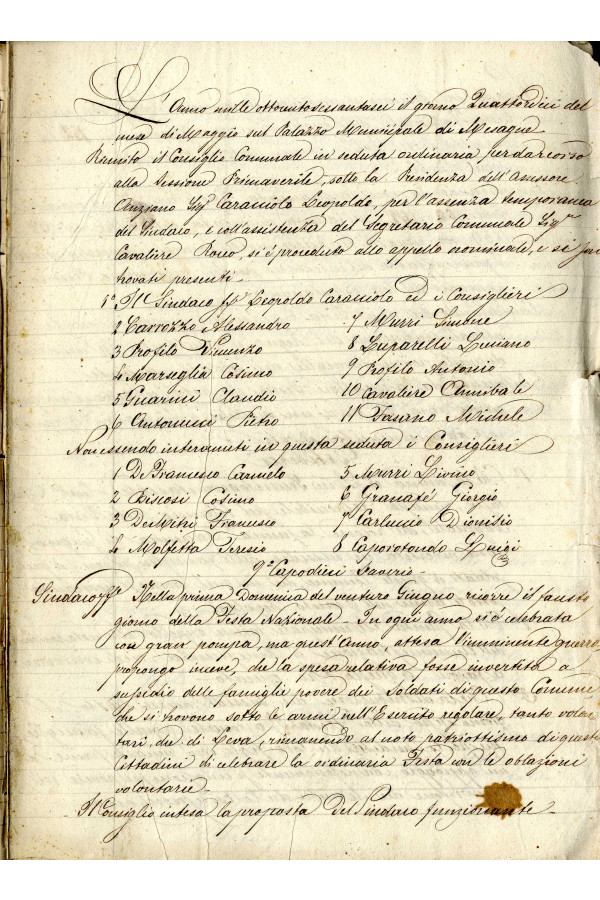 L'Anno mille ottocentosessantasei il giorno Quattordici del
mese di Maggio sul Palazzo Municipale di Mesagne
Riunito il Consiglio Comunale in seduta ordinaria per dar corso
alla sessione Primaverile, sotto la Presidenza dell'Assessore
Anziano Sigr Caracciolo Leopoldo, per l'assenza temporanea
del Sindaco, e coll'assistenza del Segretario Comunale Sigr
Cavaliere Rocco, si è proceduto allo appello nominale, e si son
trovati presenti -
1° Il Sindaco ff Leopoldo Caracciolo ed i Consiglieri
2 Carrozzo Alessandro 7 Murri Simone
3 Profilo Vincenzo 8 Luparelli Luciano
4 Marseglia Cosimo 9 Profilo Antonio
5 Guarini Claudio 10 Cavaliere Annibale
6 Antonucci Pietro 11 Fasano Michele
Non essendo intervenuti in questa seduta i Consiglieri
1 De Francesco Carmelo 5 Murri Livino
2 Riscosi Cosimo 6 Granafé Giorgio
3 De Mitri Francesco 7 Carluccio Dionisio
4 Molfetta Teresio 8 Caporotondo Luigi
9° Capodieci Saverio -
Sindaco ff Nella prima Domenica del venturo Giugno ricorre il fausto
giorno della Festa Nazionale - In ogni anno si è celebrata
con gran pompa, ma quest'Anno, attesa l'imminente guerra,
propongo invece, che la spesa relativa fosse invertita a
sussidio delle famiglie povere dei Soldati di questo Comune
che si trovono sotto le armi nell'Esercito regolare, tanto volon
tari, che di Leva, rimanendo al noto patriottismo di questi
Cittadini di celebrare la ordinaria Festa con le oblazioni
volontarie -
Il Consiglio intesa la proposta del Sindaco funzionante -